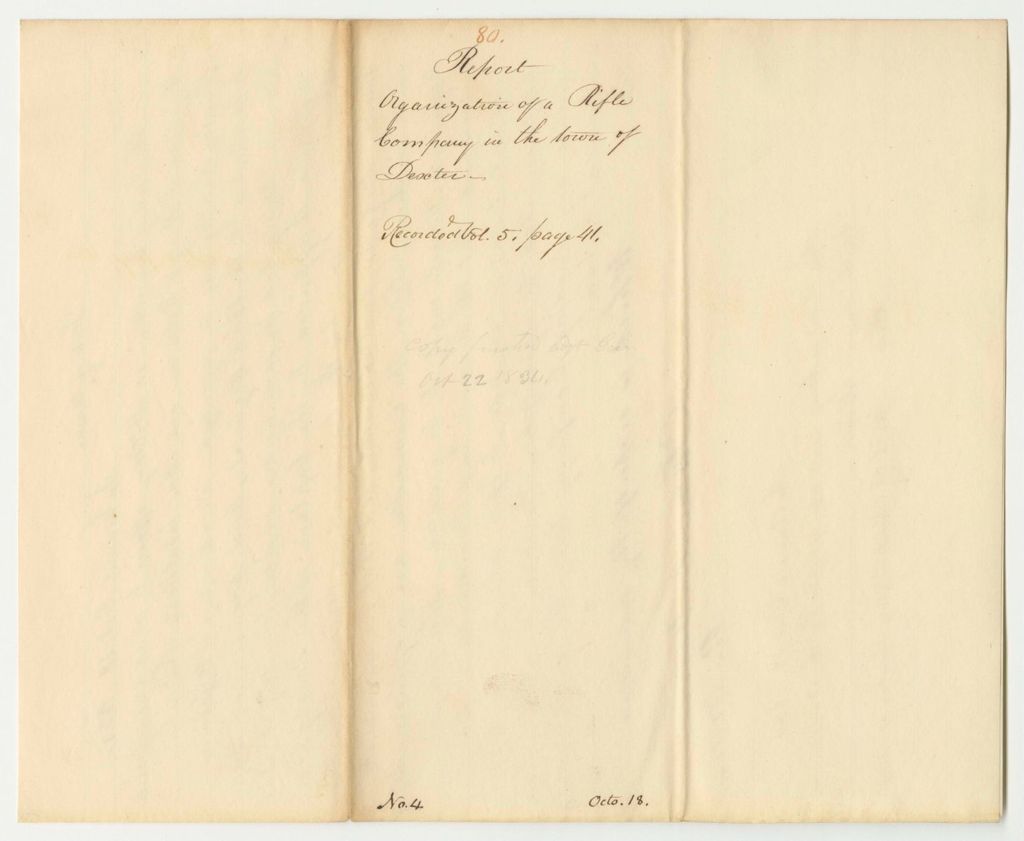 80.
Report
Organization of a Rifle
Company in the town of
Dexter—
Recorded Vol. 5. page 41.
Copy
Oct 22
No. 4
Octo. 18.